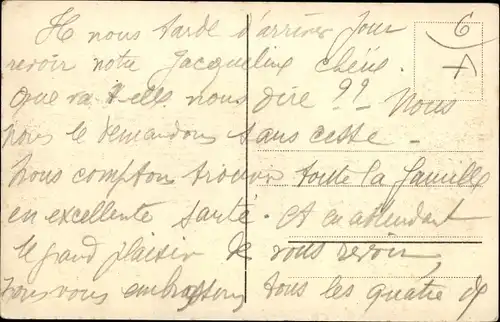 Il nous tarde d'arriver pour
revoir notre Jacqueline chérie.
Que va t-elle nous dire ?? - Nous
nous le demandons sans cesse -
Nous comptons trouver toute la famille
en excellente santé. Et en attendant
le grand plaisir de vous revoir,
nous vous embrassons tous les quatre de
6